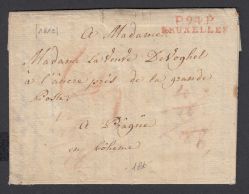 (1812)
P.94.P
BRUXELLES
A Madame
Madame La Veuve De Voghel
à l'ancre près de la grande
Poste
A Prague
en Bohême